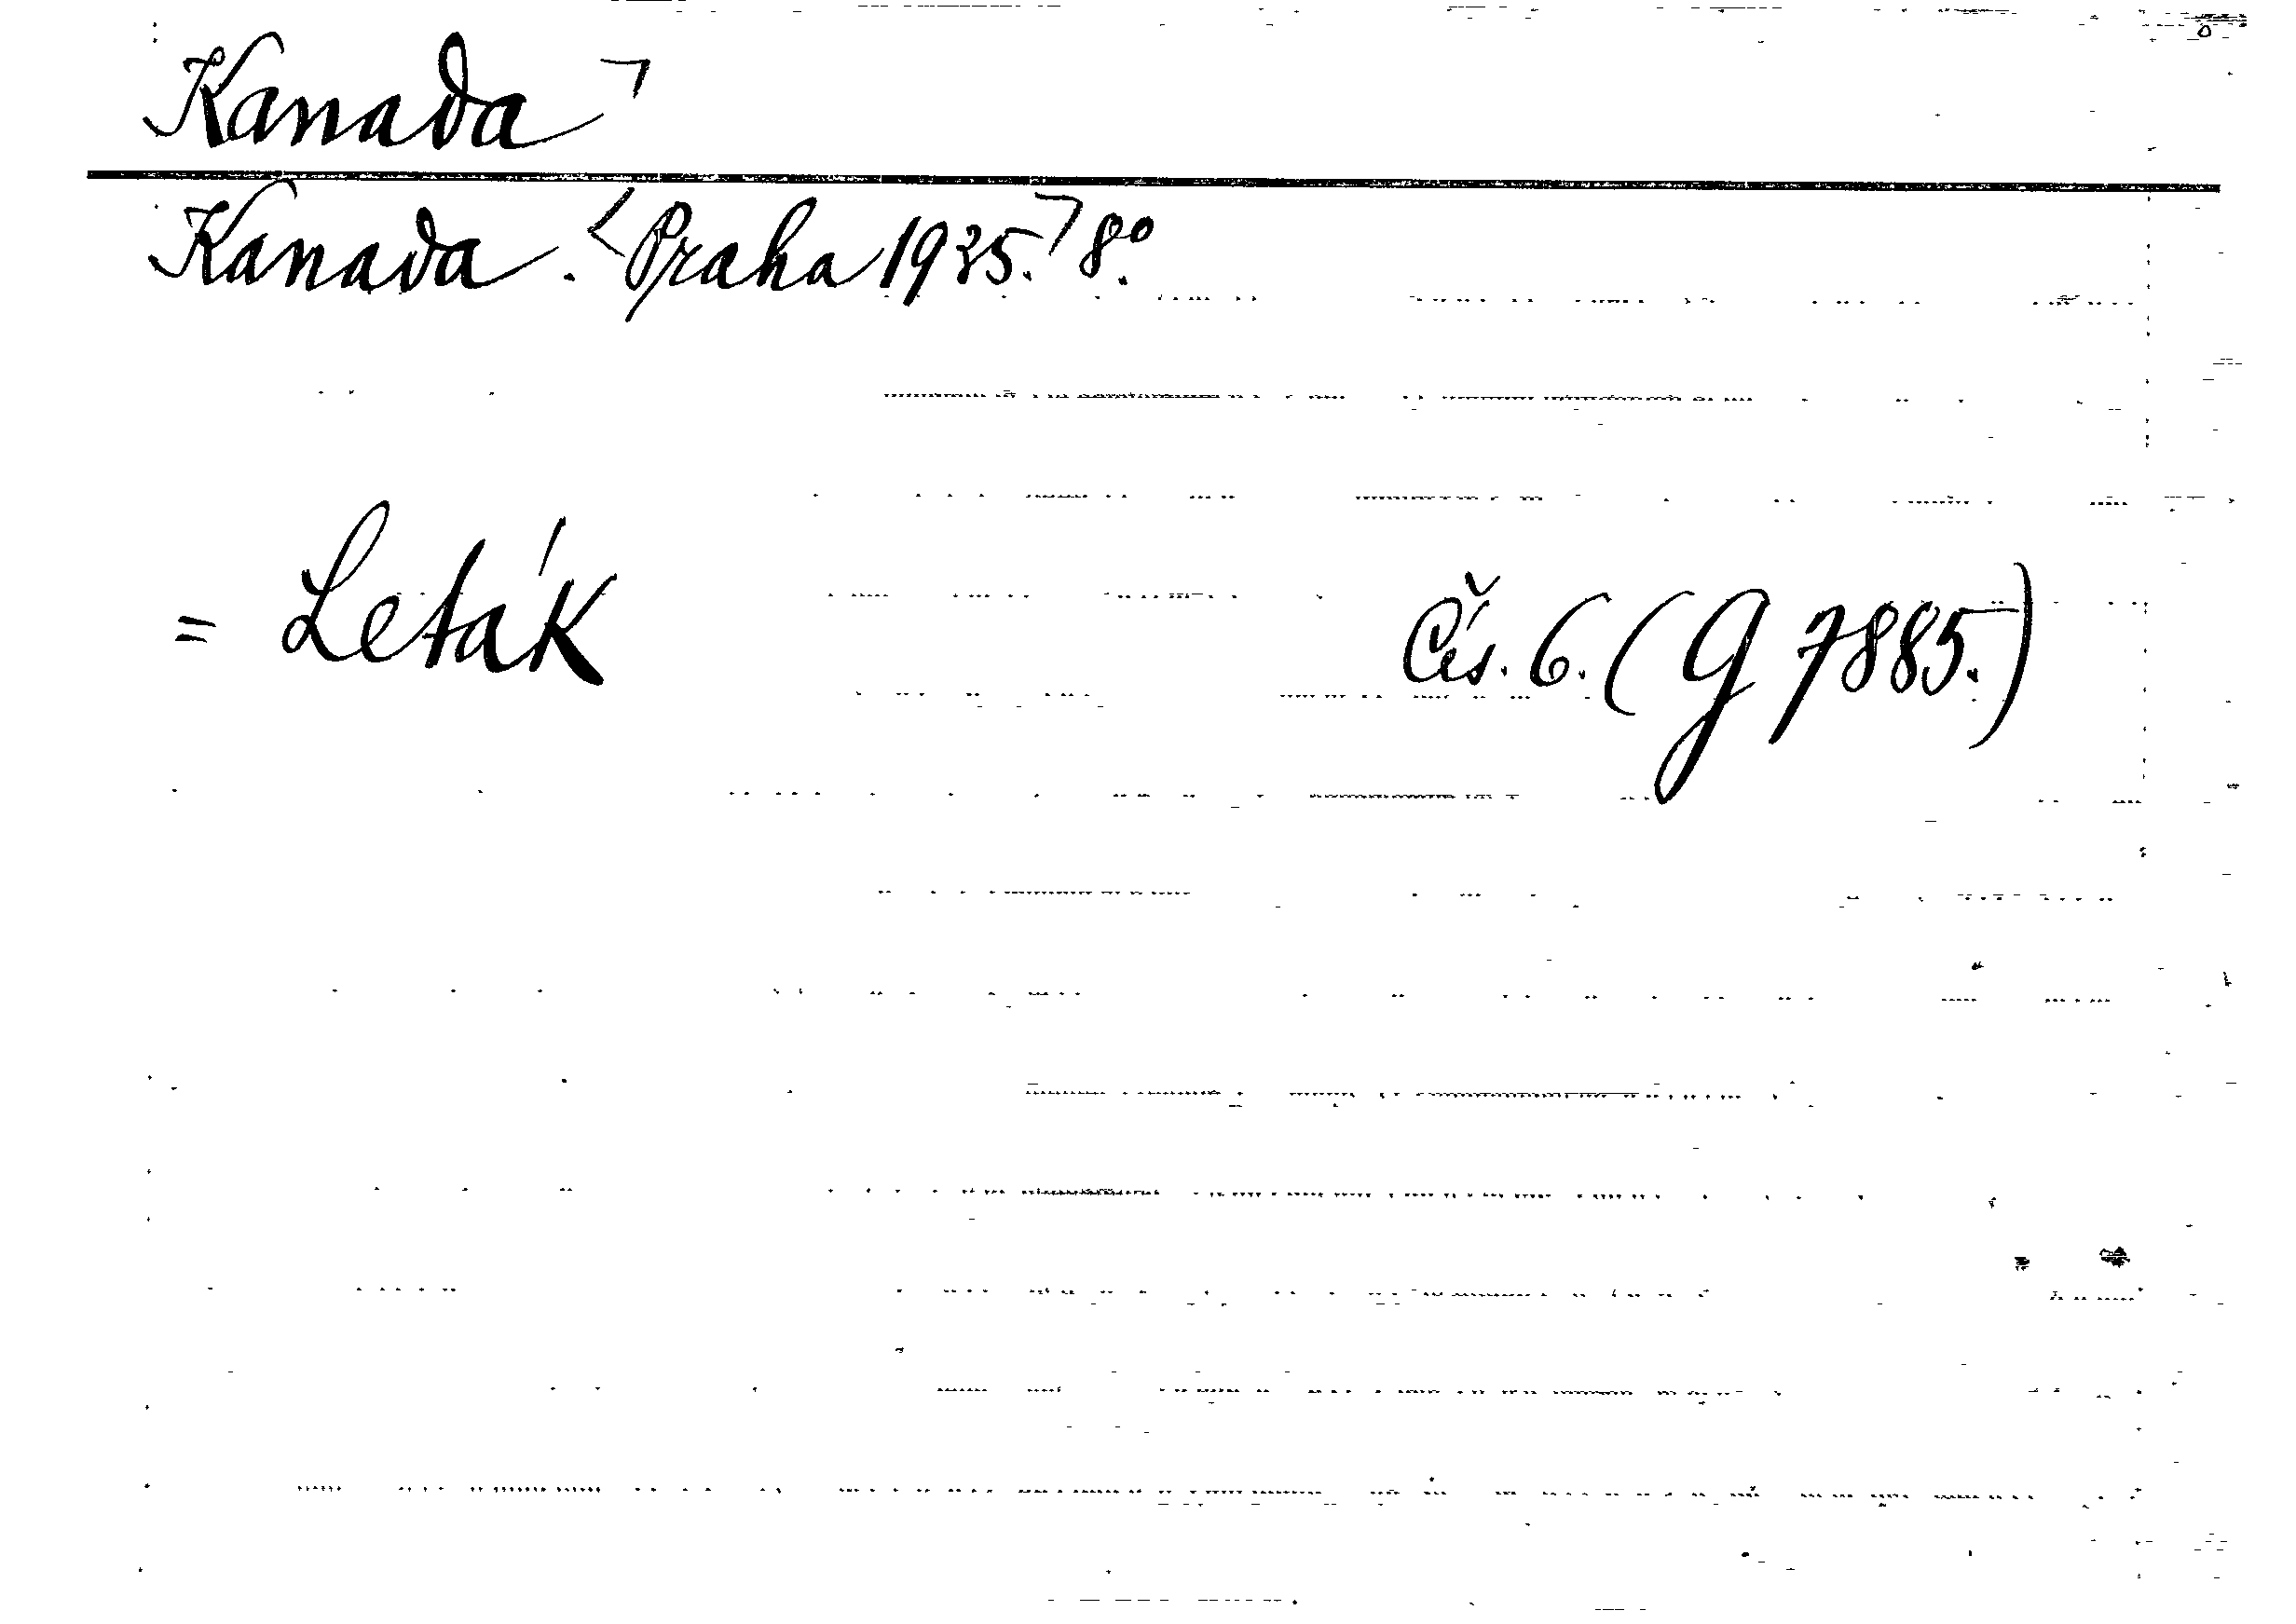 Kanada ¬
Kanada. <Praha 1935.> 8°.
= Leták Čís. 6. (G 7885.)